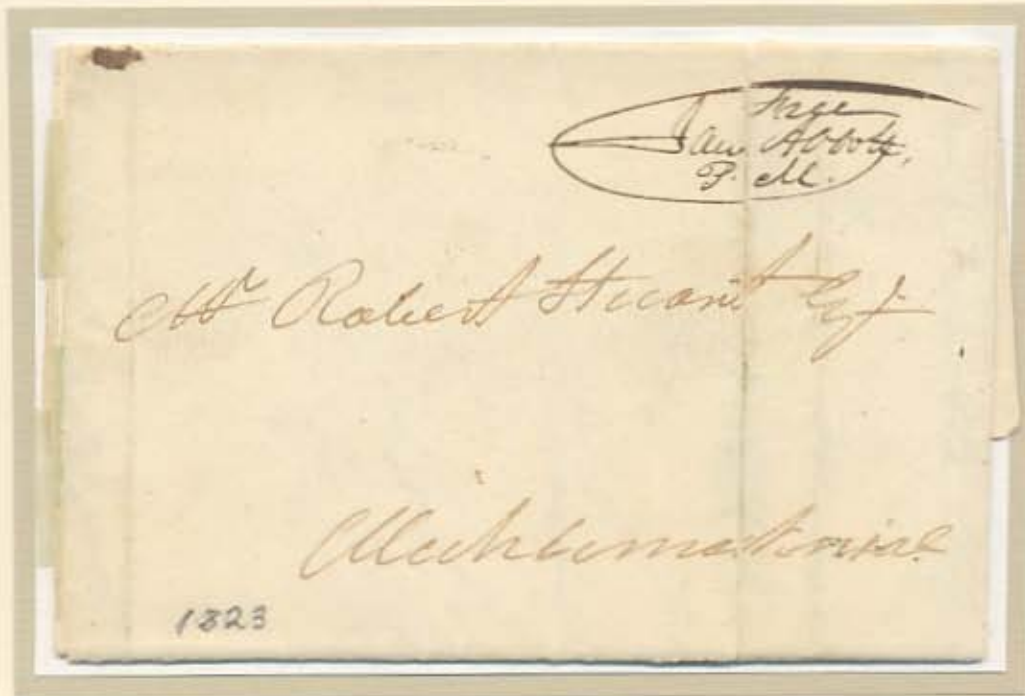 Free
Jaˢ. Abbott,
P. M.
Mʳ Robert Stuart Esqʳ
Michilimackinac
1823